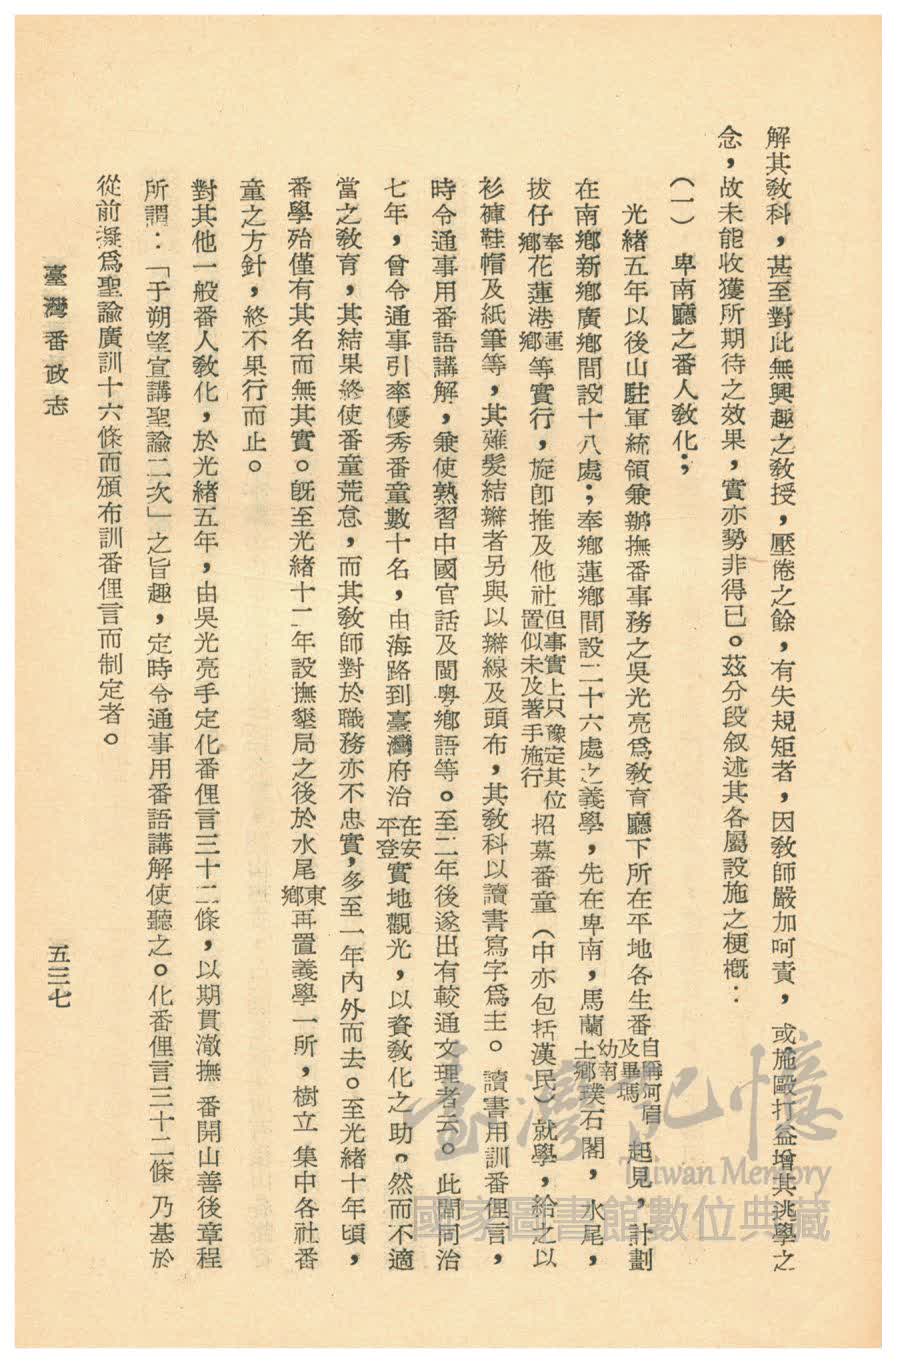 解其敎科，甚至對此無興趣之敎授，壓倦之餘，有失規矩者，因敎師嚴加呵責，或施毆打益增其逃學之
念，故未能收獲所期待之效果，實亦勢非得已。茲分段叙述其各屬設施之梗槪：
（一）　卑南廳之番人敎化；
光緒五年以後山駐軍統領兼辦撫番事務之吳光亮爲敎育廳下所在平地各生番自稱阿眉及畢瑪幼南起見，計劃
在南鄉新鄉廣鄉間設十八處；奉鄉蓮鄉間設二十六處之義學，先在卑南，馬蘭土鄉璞石閣，水尾，
拔仔奉鄉花蓮港蓮鄉等實行，旋卽推及他社但事實上只豫定其位置似未及著手施行招募番童（中亦包括漢民）就學，給之以
衫褲鞋帽及紙筆等，其薙髮結辮者另與以辮線及頭布，其敎科以讀書寫字爲主。讀書用訓番俚言，
時令通事用番語講解，兼使熟習中國官話及閩粵鄉語等。至二年後遂出有較通文理者云。此間同治
七年，曾令通事引率優秀番童數十名，由海路到臺灣府治在安平登實地觀光，以資敎化之助。然而不適
當之敎育，其結果終使番童荒怠，而其敎師對於職務亦不忠實，多至一年內外而去。至光緒十年頃，
番學殆僅有其名而無其實。旣至光緒十二年設撫墾局之後於水尾東鄉再置義學一所，樹立集中各社番
童之方針，終不果行而止。
對其他一般番人敎化，於光緒五年，由吳光亮手定化番俚言三十二條，以期貫澈撫番開山善後章程
所謂：「于朔望宣講聖諭二次」之旨趣，定時令通事用番語講解使聽之。化番俚言三十二條乃基於
從前擬爲聖諭廣訓十六條而頒布訓番俚言而制定者。
臺灣番政志
五三七
臺灣記憶
Taiwan Memory
國家圖書館數位典藏